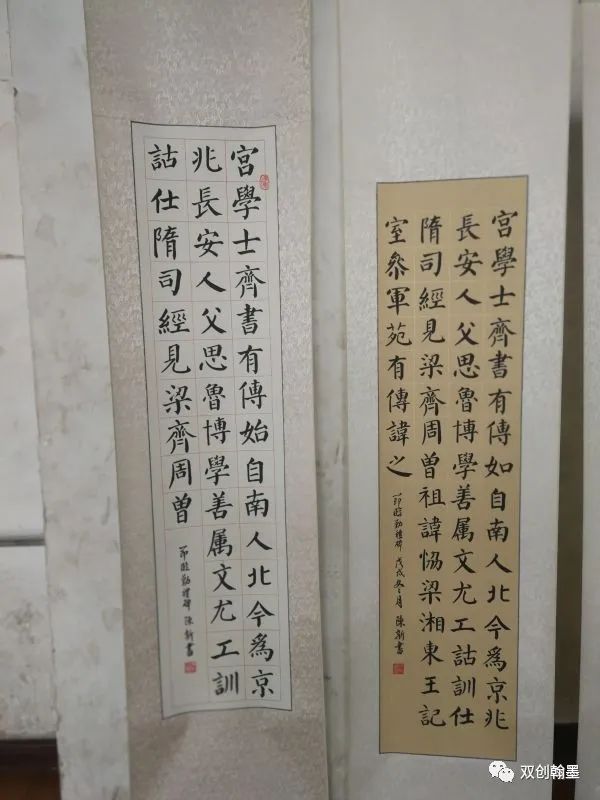 宮學士齊書有傳始自南人北今為京
兆長安人父思魯博學善属文尤工訓
詁仕隋司經見梁齊周曾
節臨勤禮碑 陳新書
宮學士齊書有傳如自南人北今為京兆
長安人父思魯博學善属文尤工詁訓仕
隋司經見梁齊周曾祖諱恊梁湘東王記
室叅軍苑有傳諱之
節臨勤禮碑 戊戌冬月 陳新書
双创翰墨